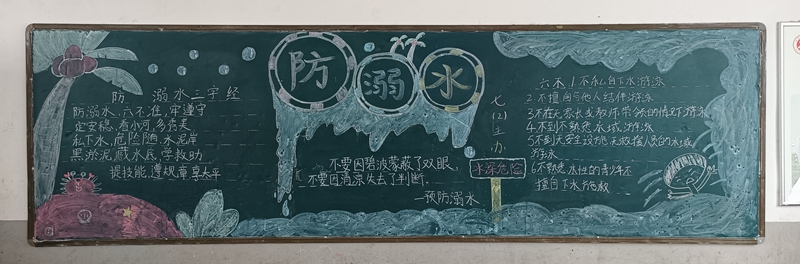 防溺水
防 溺水三字经
防溺水,六不准,牢遵守
定安稳,看小河,多秀美
私下水,危险随,水泥岸
黑淤泥,藏水底,学救助
提技能,遵规章,享太平
不要因碧波蒙蔽了双眼,
不要因清凉失去了判断.
—预防溺水
七(2)主办
水深危险
六不 1.不私自下水游泳
2.不擅自与他人结伴游泳
3.不在无家长或教师带领的情况下游泳
4.不到不熟悉水域游泳
5.不到无安全设施、无救援人员的水域
游泳
6.不熟悉水性的青少年不
擅自下水施救